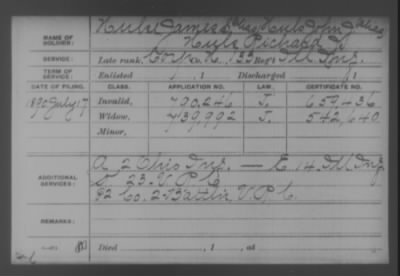 Hule James alias Hule John J alias
NAME OF SOLDIER: Hule Richard J.
SERVICE: Late rank, Co. K, 133 Reg't Ill Inf.
TERM OF SERVICE: Enlisted , 1 Discharged , 1
DATE OF FILING. CLASS. APPLICATION NO. LAW. CERTIFICATE NO.
1890 July 17 Invalid, 790,246 J. 659,436
Widow, 739,992 J. 542,640
Minor,
ADDITIONAL SERVICES: A 2 Ohio Inf. — E 14 Ill Inf.
23. V.R.C.
82 Co. 2 Battl'n V.R.C.
REMARKS:
Died , 1 , at